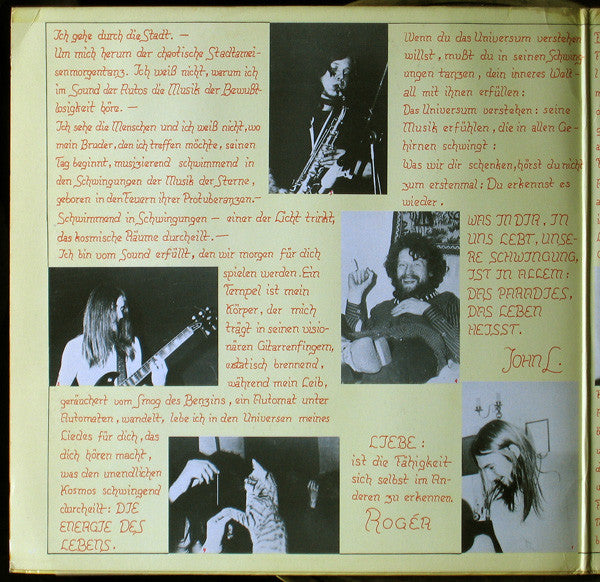 Ich gehe durch die Stadt. —
Um mich herum der chaotische Stadtamei-
senmorgentanz. Ich weiß nicht, warum ich
im Sound der Autos die Musik der Bewußt-
losigkeit höre. —
Ich sehe die Menschen und ich weiß nicht, wo
mein Bruder, den ich treffen möchte, seinen
Tag beginnt, musizierend schwimmend in
den Schwingungen der Musik der Sterne,
geboren in den Feuern ihrer Protuberanzen.—
Schwimmend in Schwingungen — einer der Licht trinkt,
das kosmische Räume durcheilt. —
Ich bin vom Sound erfüllt, den wir morgen für dich
spielen werden. Ein
Tempel ist mein
Körper, der mich
trägt in seinen visio-
nären Gitarrenfingern,
extatisch brennend,
während mein Leib,
geräuchert vom Smog des Benzins, ein Automat unter
Automaten, wandelt, lebe ich in den Universen meines
Liedes für dich, das
dich hören macht,
was den unendlichen
Kosmos schwingend
durcheilt: DIE
ENERGIE DES
LEBENS.
Wenn du das Universum verstehen
willst, mußt du in seinen Schwing-
ungen tanzen, dein inneres Welt-
all mit ihnen erfüllen:
Das Universum verstehen: seine
Musik erfühlen, die in allen Ge-
hirnen schwingt:
Was wir dir schenken, hörst du nicht
zum erstenmal: Du erkennst es
wieder.
WAS IN DIR, IN
UNS LEBT, UNSE-
RE SCHWINGUNG,
IST IN ALLEM:
DAS PARADIES,
DAS LEBEN
HEISST.
JOHN L.
LIEBE:
ist die Fähigkeit
sich selbst im An-
deren zu erkennen.
ROGÉR